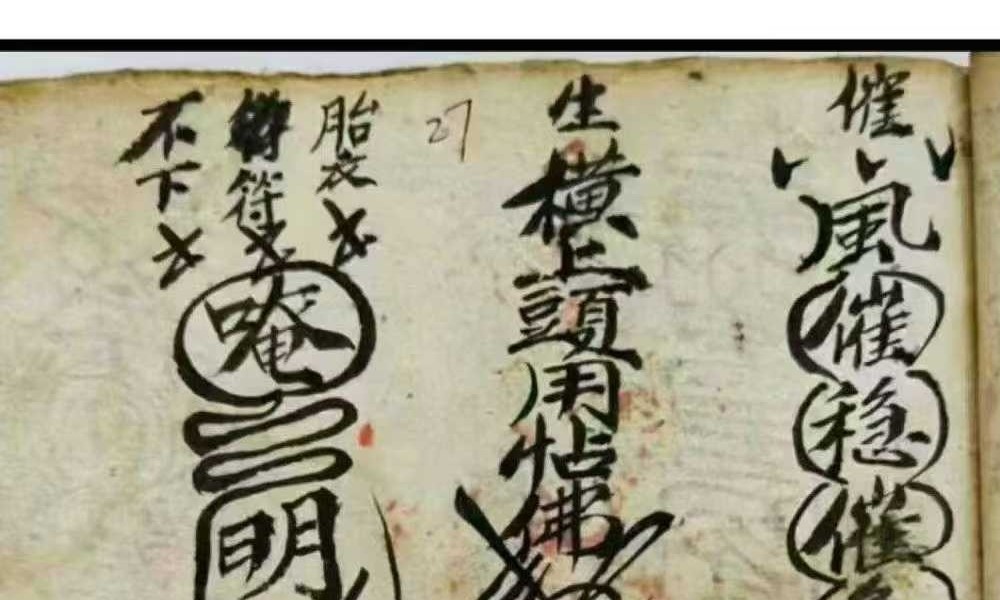 催
風催穩催
生
橫上頭用帖佛
27
胎衣
符
不下
唵
明